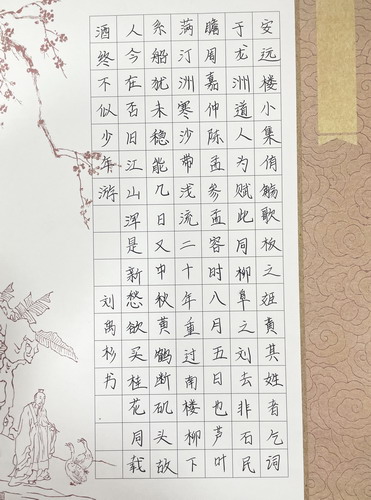 安远楼小集侑觞歌板之姬黄其姓者乞词
于龙洲道人为赋此同柳阜之刘去非石民
瞻周嘉仲陈孟参孟容时八月五日也芦叶
满汀洲寒沙带浅流二十年重过南楼柳下
系船犹未稳能几日又中秋黄鹤断矶头故
人今在否旧江山浑是新愁欲买桂花同载
酒终不似少年游
刘禹杉书